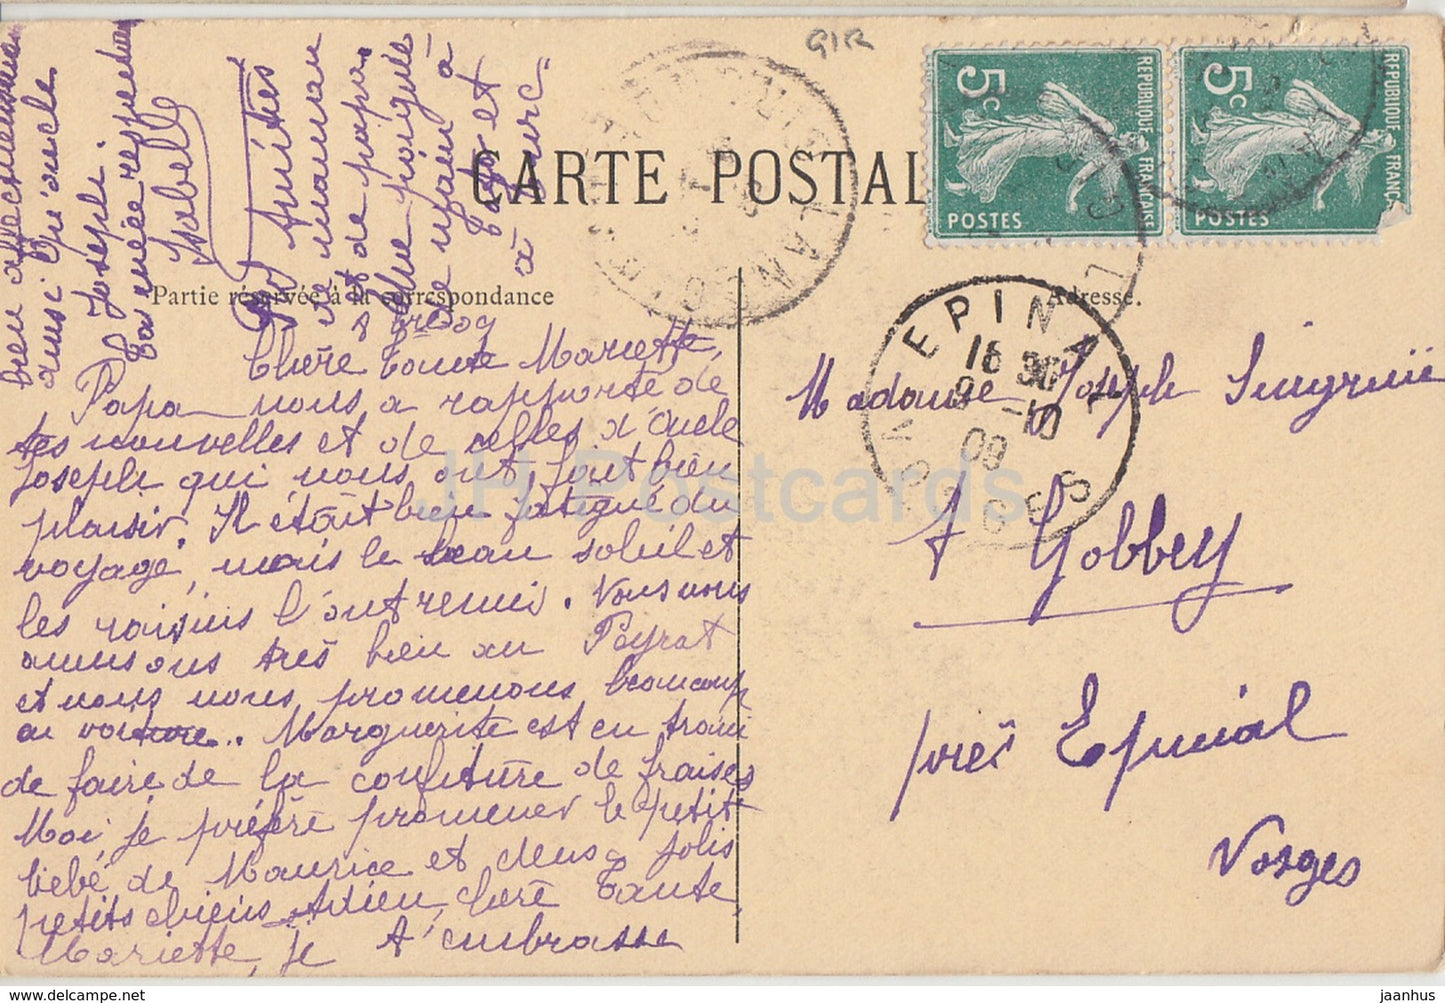 GIR
CARTE POSTALE
Partie réservée à la correspondance
Adresse.
5c
REPUBLIQUE FRANÇAISE
POSTES
5c
REPUBLIQUE FRANÇAISE
POSTES
EPINAL
16 30
9 -10
09
VOSGES
Chère Tante Mariette,
Papa nous a rapporté de
tes nouvelles et de celles d'Oncle
Joseph qui nous ont fait bien
plaisir. Il était bien fatigué du
voyage, mais le beau soleil et
les raisins l'ont remis. Nous nous
amusons très bien au Peyrat
et nous nous promenons beaucoup
en voiture. Marguerite est en train
de faire de la confiture de fraises
Moi, je préfère promener le petit
bébé de Maurice et deux jolis
petits chiens. Adieu, chère Tante
Mariette, je t'embrasse
bien affectueusement
ainsi qu'oncle
Joseph.
Ta nièce respectueuse
Isabelle
Amitiés
de maman
et de papa.
Une poignée
de main à
et
à
Madame Joseph
A Gobbey
près Epinal
Vosges
JH Postcards
www.delcampe.net
jaanhus